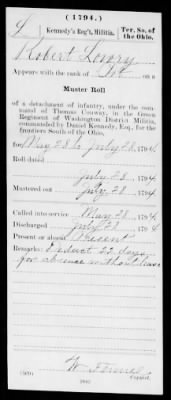 (1794.)
L | Kennedy's Reg't, Militia, | Ter. So. of the Ohio.
Robert Lowry
Appears with the rank of Pvt on a
Muster Roll
of a detachment of infantry, under the com-
mand of Thomas Conway, in the Green
Regiment of Washington District Militia
commanded by Daniel Kennedy, Esq., for the
frontiers South of the Ohio,
for May 28 to July 28, 1794
Roll dated
July 28, 1794
Mustered out July 28, 1794
Called into service May 28, 1794
Discharged July 28, 1794
Present or absent Present
Remarks: Deduct 22 days
for absence without leave
Copyist.